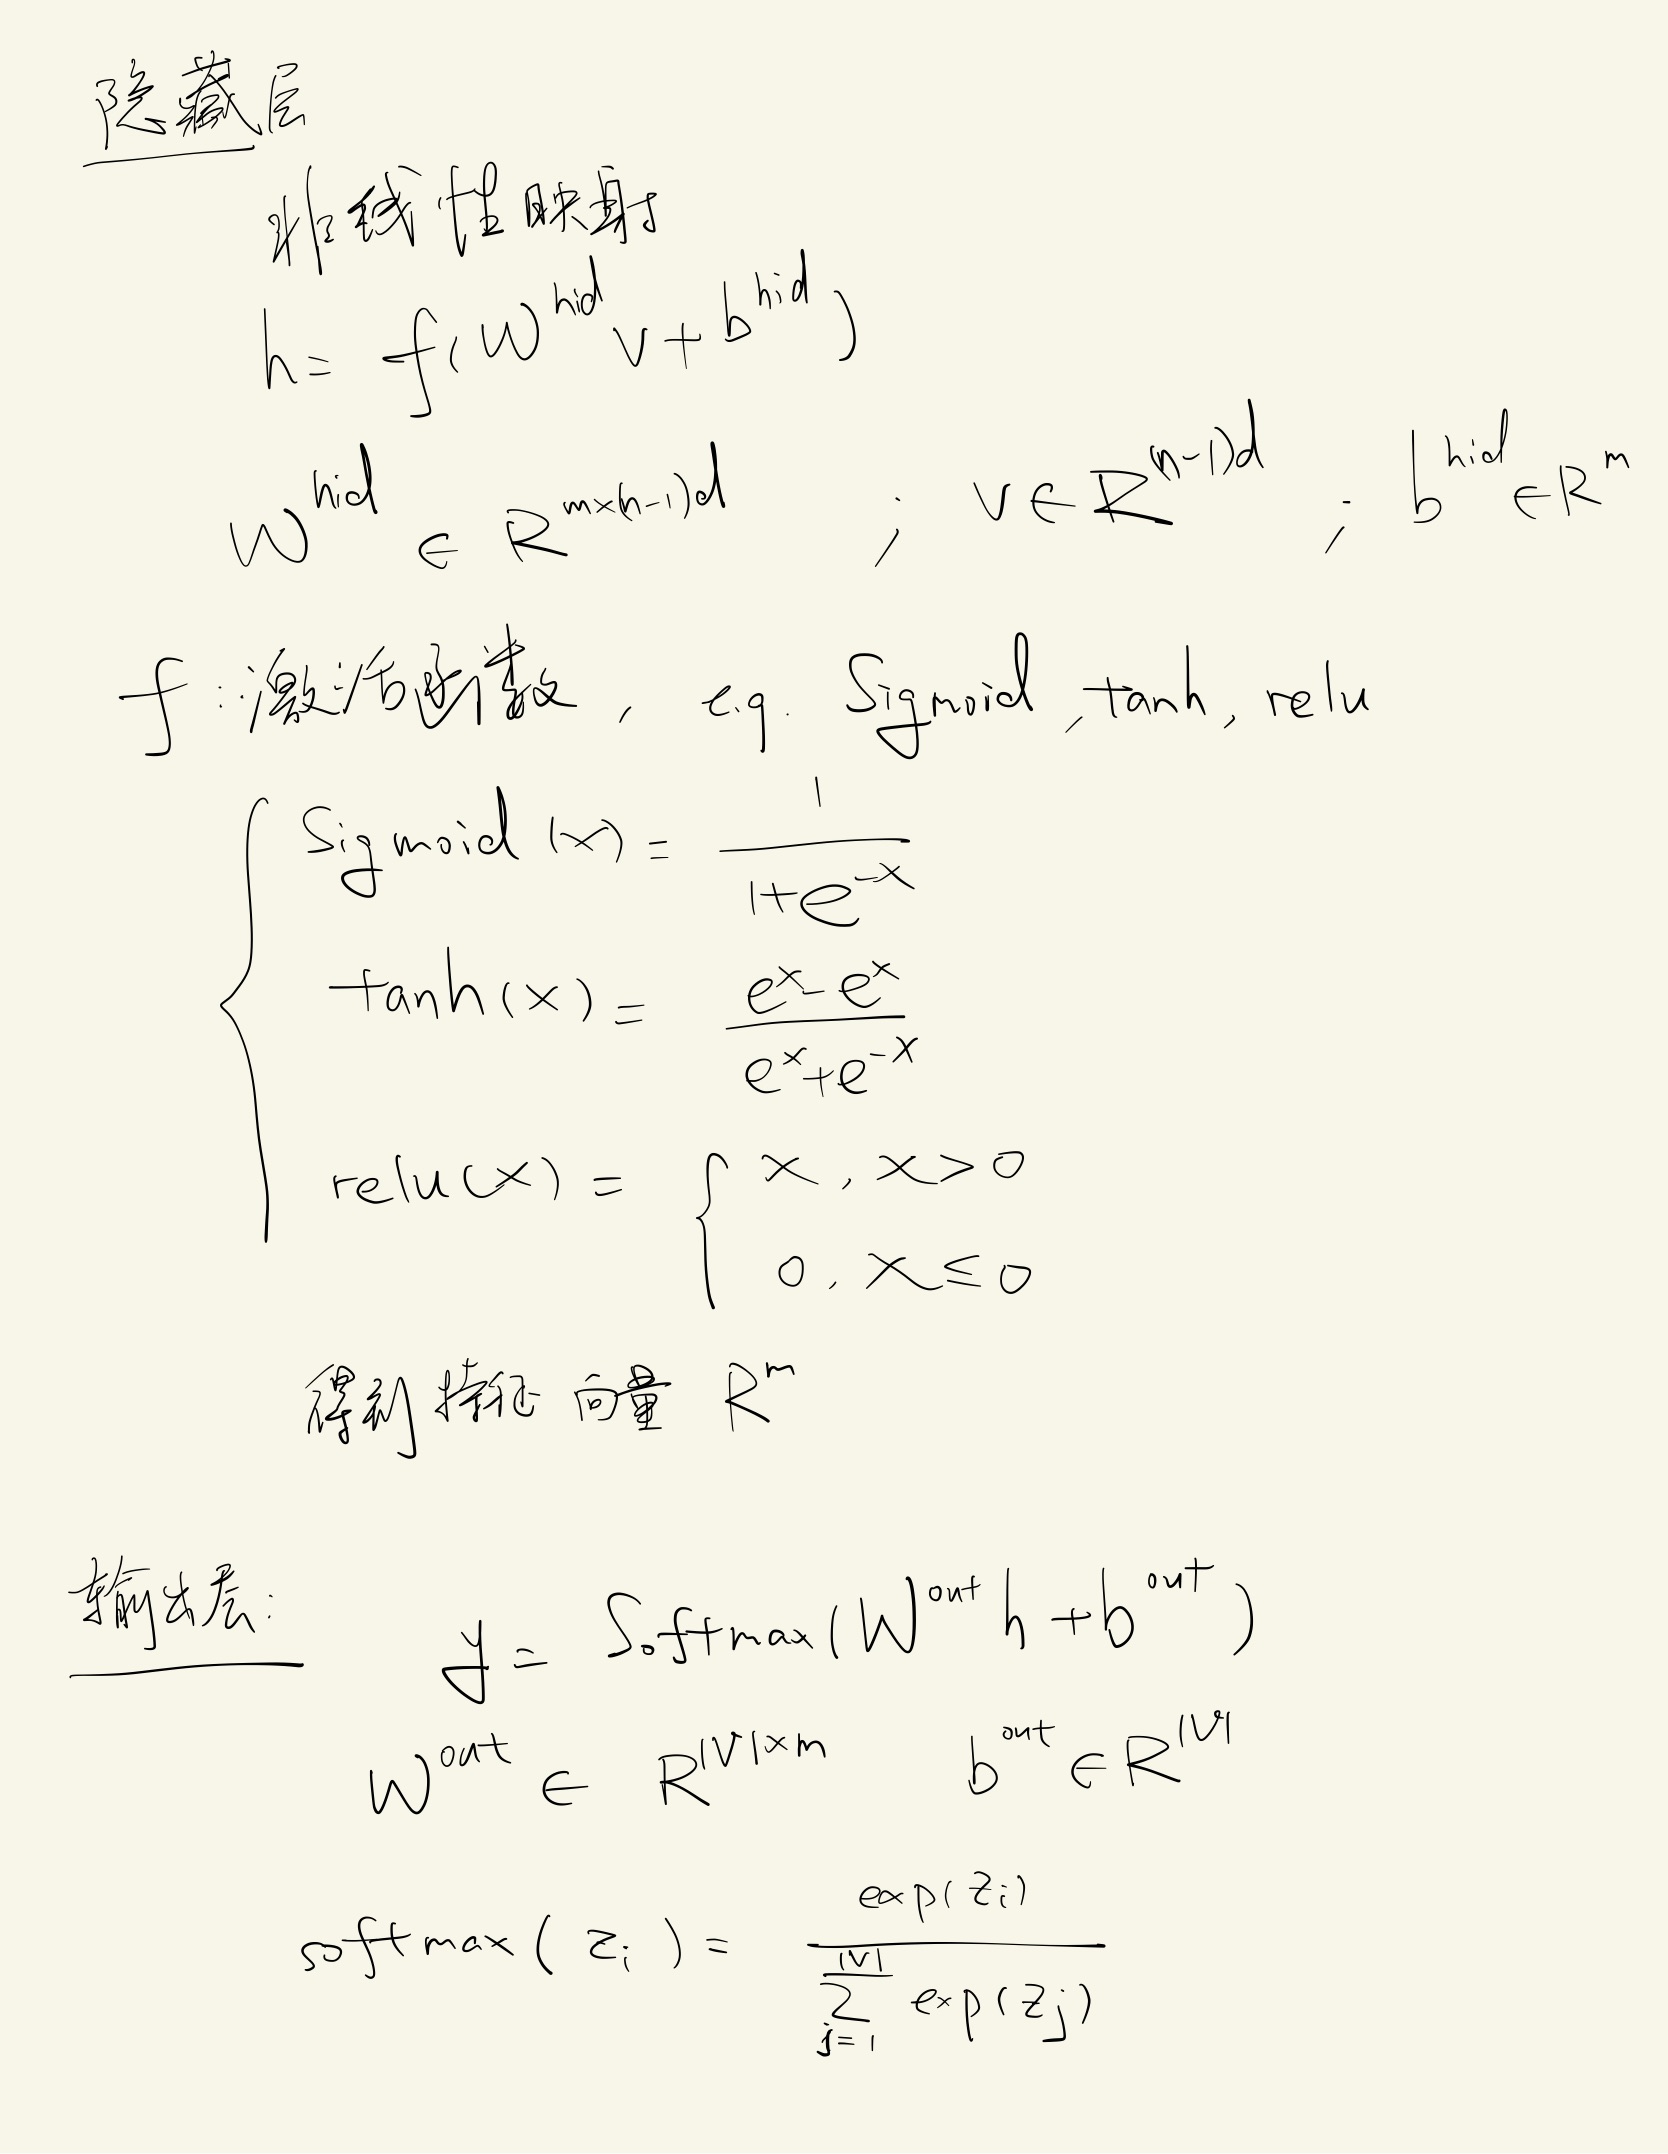 隐藏层
非线性映射
h = f(W^hid v + b^hid)
W^hid ∈ R^m×(n-1)d ; v ∈ R^(n-1)d ; b^hid ∈ R^m
f : 激活函数, e.g. Sigmoid, tanh, relu
Sigmoid(x) = 1 / (1+e^-x)
tanh(x) = (e^x - e^x) / (e^x + e^-x)
relu(x) = { x, x>0
0, x≤0
得到特征向量 R^m
输出层: y = Softmax(W^out h + b^out)
W^out ∈ R^|V|×m b^out ∈ R^|V|
softmax(z_i) = exp(z_i) / ∑_{j=1}^{|V|} exp(z_j)